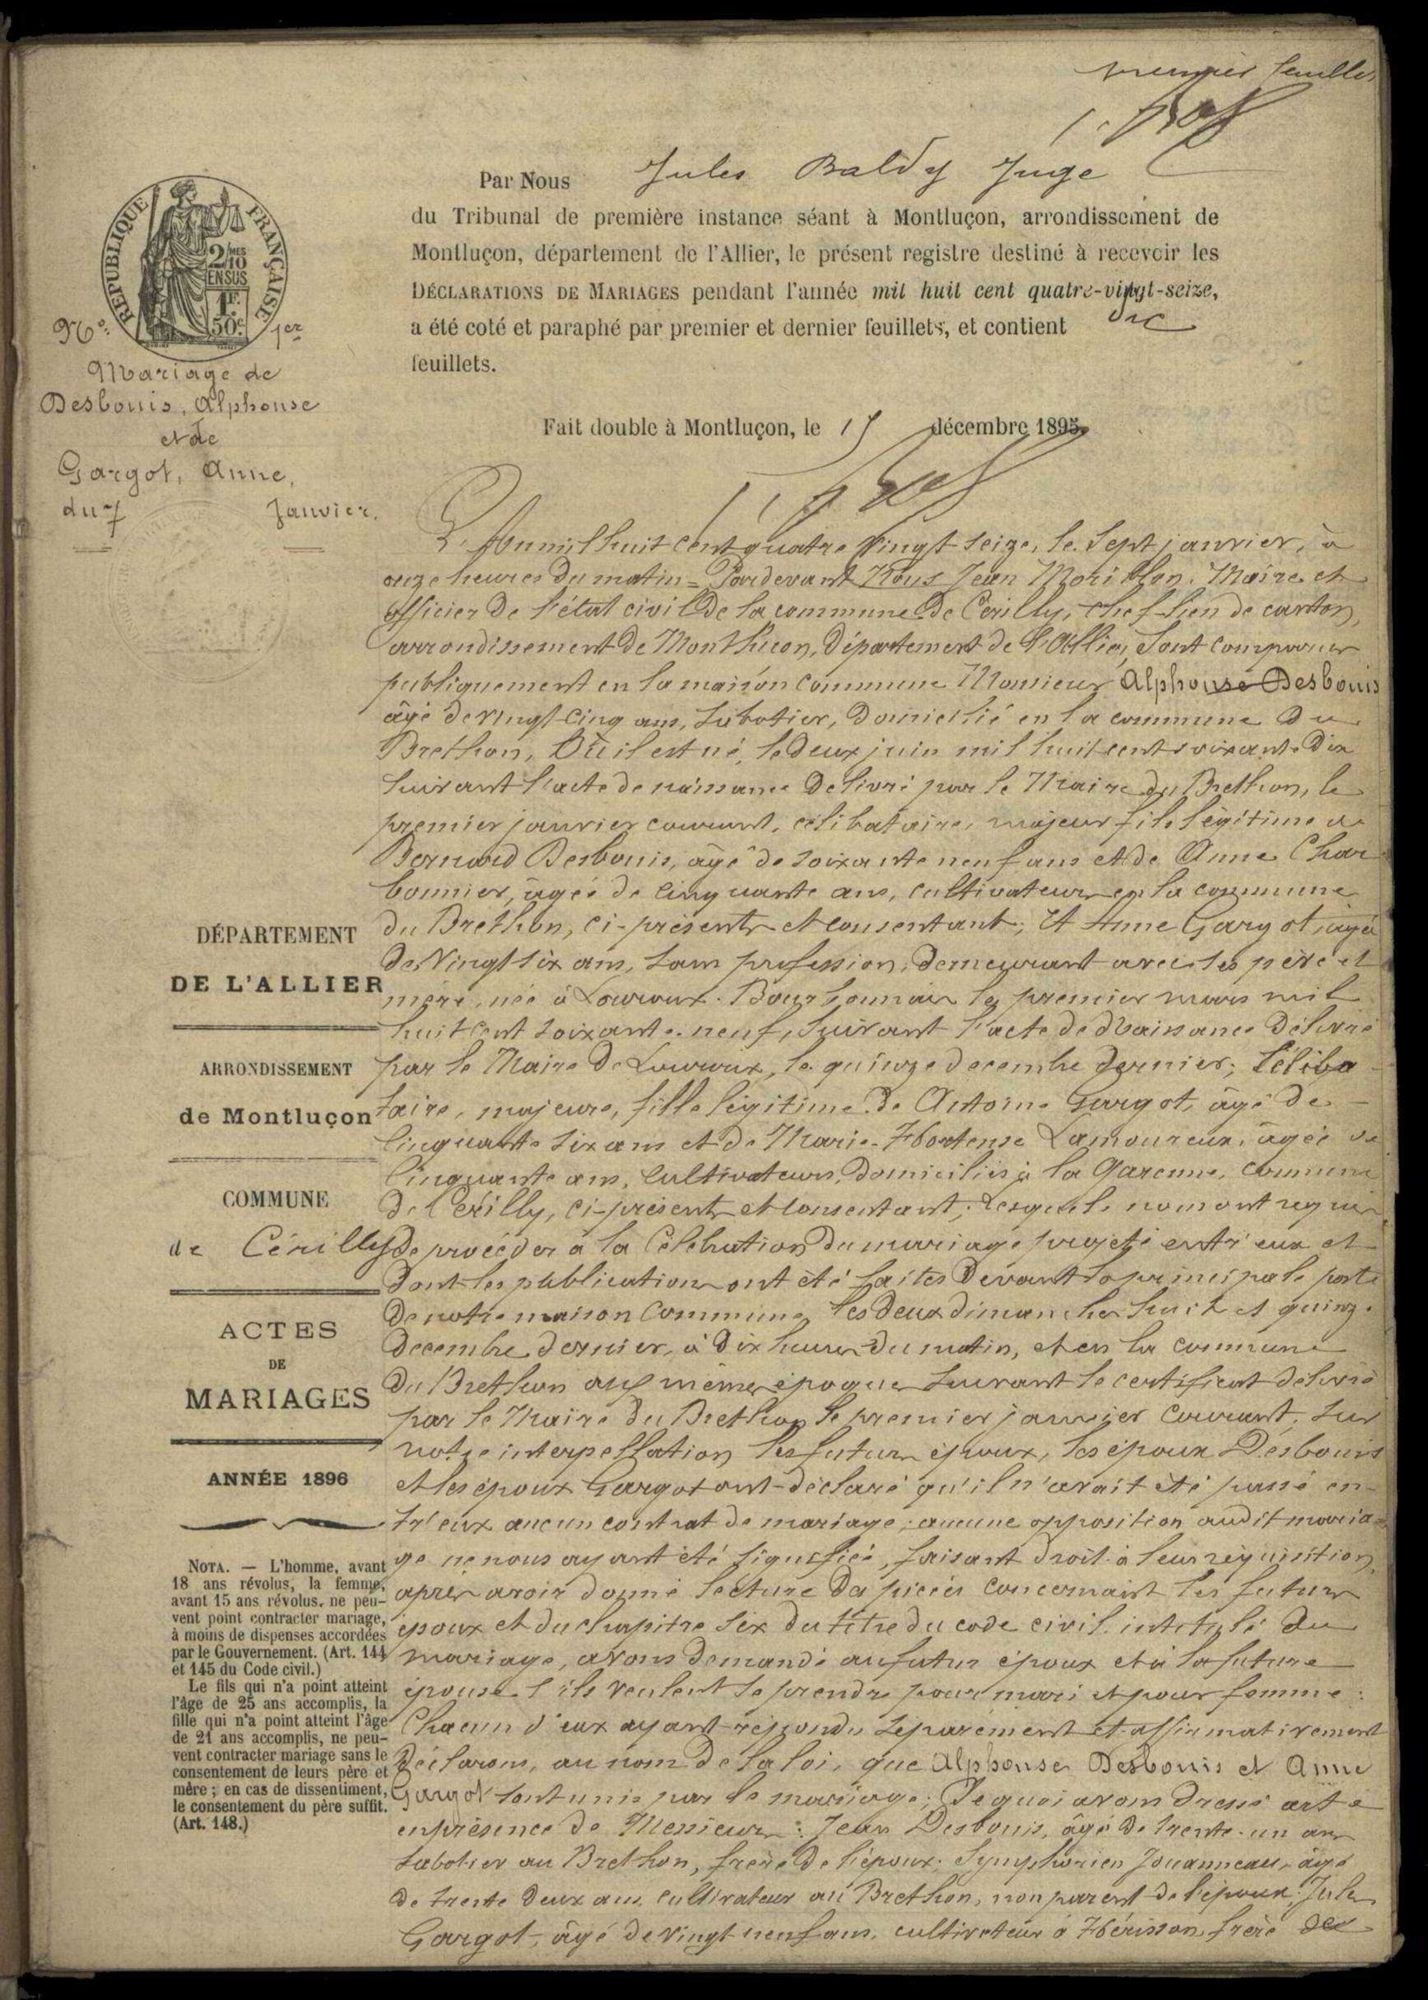 premier feuillet
Par Nous Jules Baldy Juge
du Tribunal de première instance séant à Montluçon, arrondissement de
Montluçon, département de l'Allier, le présent registre destiné à recevoir les
DÉCLARATIONS DE MARIAGES pendant l'année mil huit cent quatre-vingt-seize,
a été coté et paraphé par premier et dernier feuillets, et contient dix
feuillets.
Fait double à Montluçon, le 15 décembre 1895.
RÉPUBLIQUE FRANÇAISE
2/10
EN SUS
1F.
50c.
No. 1er
Mariage de
Desbouis, Alphonse
et de
Gargot, Anne,
du 7 Janvier.
L'An mil huit cent quatre vingt seize, le sept janvier, à
onze heures du matin = Pardevant Nous Jean Morillon, Maire et
officier de l'état civil de la commune de Cérilly, chef-lieu de canton,
arrondissement de Montluçon, Département de l'Allier, sont comparus
publiquement en la maison commune Monsieur Alphonse Desbouis
âgé de vingt-cinq ans, sabotier, domicilié en la commune du
Brethon, Où il est né, le deux juin mil huit cent soixante dix
suivant l'acte de naissance délivré par le Maire du Brethon, le
premier janvier courant, célibataire, majeur fils légitime de
Bernard Desbouis, âgé de soixante neuf ans et de Anne Char
bonnier, âgée de cinquante ans, cultivateurs en la commune
du Brethon, ci-présents et consentant; Et Anne Gargot, âgée
de Vingt six ans, sans profession, demeurant avec ses père et
mère, née à Louroux-Bourbonnais le premier mars mil
huit cent soixante-neuf, suivant l'acte de Naissance délivré
par le Maire de Louroux, le quinze décembre dernier; Céliba
taire, majeure, fille légitime de Antoine Gargot, âgé de
cinquante six ans et de Marie-Hortense Lamoureux, âgée de
cinquante ans, cultivateurs, domiciliés à la Garenne, commune
de Cérilly, ci-présents et consentant; Lesquels nous ont requis
de procéder à la Célébration du mariage projeté entr'eux et
dont les publications ont été faites devant la principale porte
de notre maison commune, les deux dimanches huit et quinze
décembre dernier, à dix heures du matin, et en la commune
du Brethon aux mêmes époques suivant le certificat délivré
par le Maire du Brethon le premier janvier courant, sur
notre interpellation les futurs époux, les époux Desbouis
et les époux Gargot ont déclaré qu'il n'avait été passé en-
tr'eux aucun contrat de mariage; aucune opposition audit maria
ge ne nous ayant été signifiée, faisant droit à leur réquisition,
après avoir donné lecture des pièces concernant les futurs
époux et du chapitre six du titre du code civil intitulé du
mariage, avons demandé au futur époux et à la future
épouse s'ils veulent se prendre pour mari et pour femme:
Chacun d'eux ayant répondu séparément et affirmativement
Déclarons, au nom de la loi, que Alphonse Desbouis et Anne
Gargot sont unis par le mariage; De quoi avons dressé acte
en présence de Messieurs: Jean Desbouis, âgé de trente-un ans
sabotier au Brethon, frère de l'époux; Symphorien Jouanneau, âgé
de trente deux ans, cultivateur au Brethon, non parent de l'époux; Jules
Gargot, âgé de vingt neuf ans, cultivateur à Hérisson, frère de
DÉPARTEMENT
DE L'ALLIER
ARRONDISSEMENT
de Montluçon
COMMUNE
de Cérilly
ACTES
DE
MARIAGES
ANNÉE 1896
NOTA. — L'homme, avant
18 ans révolus, la femme,
avant 15 ans révolus, ne peu-
vent point contracter mariage,
à moins de dispenses accordées
par le Gouvernement. (Art. 144
et 145 du Code civil.)
Le fils qui n'a point atteint
l'âge de 25 ans accomplis, la
fille qui n'a point atteint l'âge
de 21 ans accomplis, ne peu-
vent contracter mariage sans le
consentement de leurs père et
mère ; en cas de dissentiment,
le consentement du père suffit.
(Art. 148.)